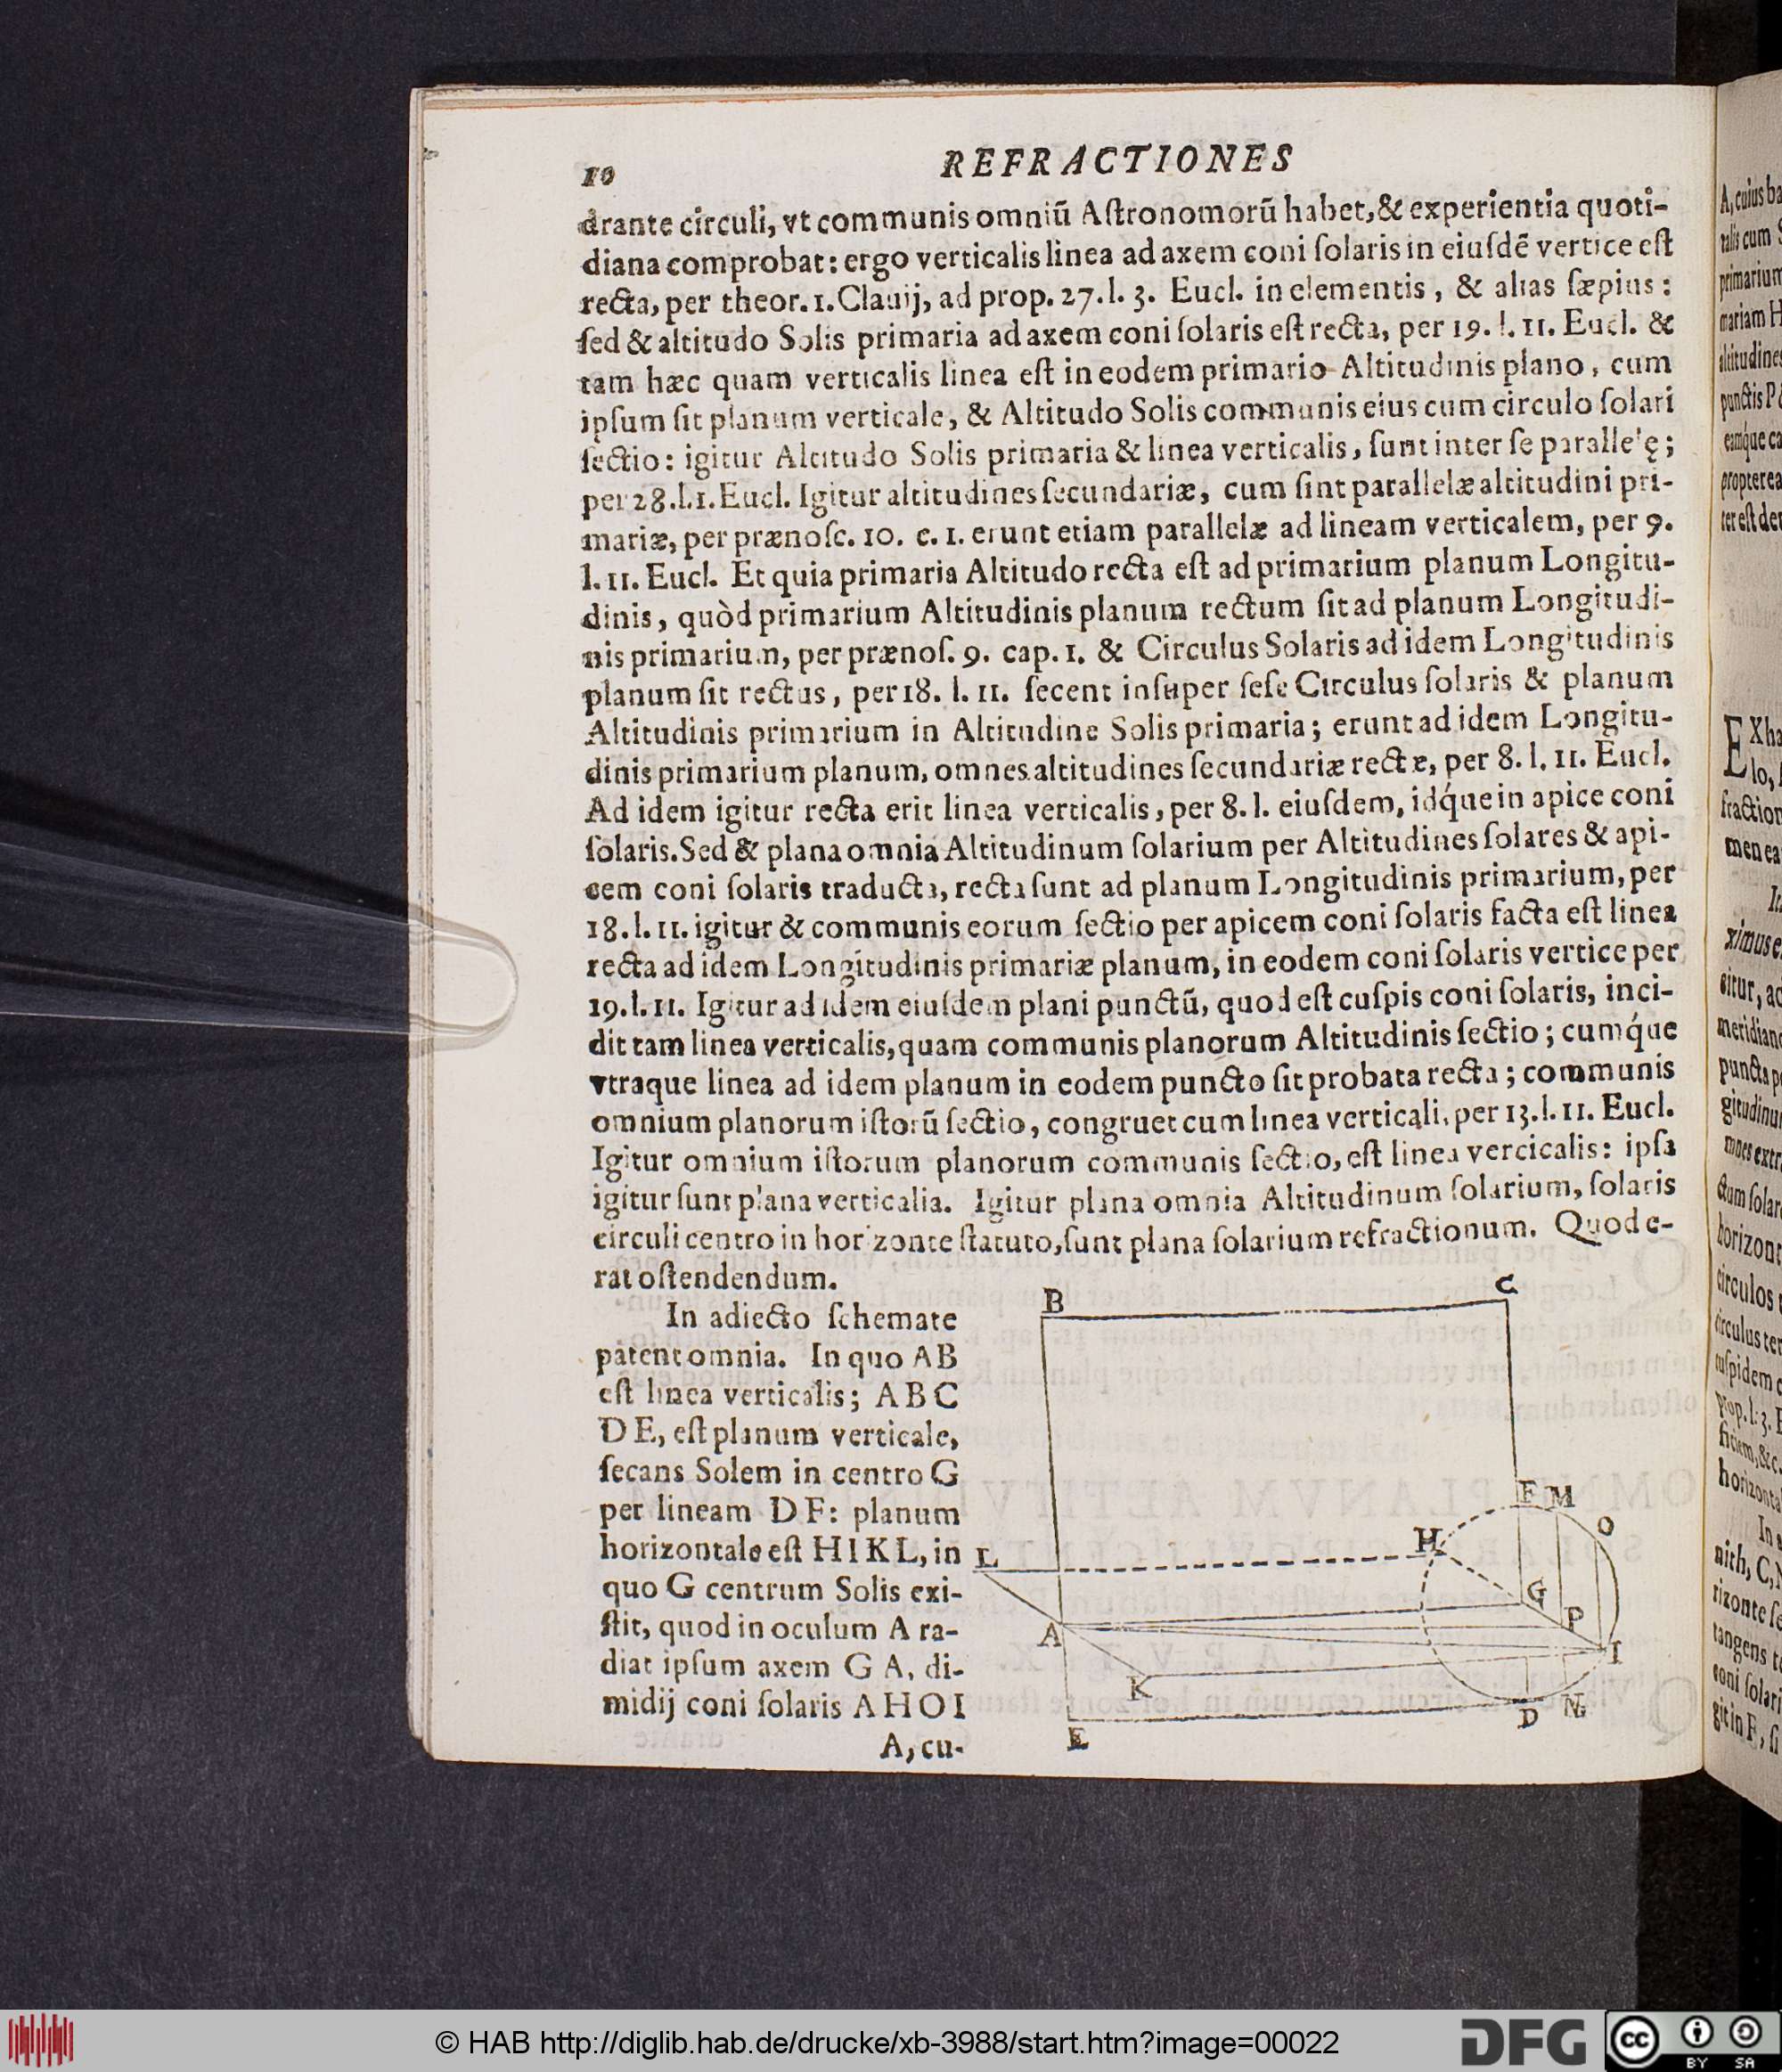 10 REFRACTIONES
drante circuli, vt communis omniū Aſtronomorū habet, & experientia quoti-
diana comprobat: ergo verticalis linea ad axem coni ſolaris in eiuſdē vertice eſt
recta, per theor. 1. Clauij, ad prop. 27. l. 3. Eucl. in elementis, & alias ſæpius:
ſed & altitudo Solis primaria ad axem coni ſolaris eſt recta, per 19. l. 11. Eucl. &
tam hæc quam verticalis linea eſt in eodem primario Altitudinis plano, cum
ipſum ſit planum verticale, & Altitudo Solis communis eius cum circulo ſolari
ſectio: igitur Altitudo Solis primaria & linea verticalis, ſunt inter ſe parallelę;
per 28. l. 1. Eucl. Igitur altitudines ſecundariæ, cum ſint parallelæ altitudini pri-
mariæ, per prænoſc. 10. c. 1. erunt etiam parallelæ ad lineam verticalem, per 9.
l. 11. Eucl. Et quia primaria Altitudo recta eſt ad primarium planum Longitu-
dinis, quòd primarium Altitudinis planum rectum ſit ad planum Longitudi-
nis primarium, per prænoſ. 9. cap. 1. & Circulus Solaris ad idem Longitudinis
planum ſit rectus, per 18. l. 11. ſecent inſuper ſeſe Circulus ſolaris & planum
Altitudinis primarium in Altitudine Solis primaria; erunt ad idem Longitu-
dinis primarium planum, omnes altitudines ſecundariæ rectæ, per 8. l. 11. Eucl.
Ad idem igitur recta erit linea verticalis, per 8. l. eiuſdem, idq́ue in apice coni
ſolaris. Sed & plana omnia Altitudinum ſolarium per Altitudines ſolares & api-
cem coni ſolaris traducta, recta ſunt ad planum Longitudinis primarium, per
18. l. 11. igitur & communis eorum ſectio per apicem coni ſolaris facta eſt linea
recta ad idem Longitudinis primariæ planum, in eodem coni ſolaris vertice per
19. l. 11. Igitur ad idem eiuſdem plani punctū, quod eſt cuſpis coni ſolaris, inci-
dit tam linea verticalis, quam communis planorum Altitudinis ſectio; cumq́ue
vtraque linea ad idem planum in eodem puncto ſit probata recta; communis
omnium planorum iſtorū ſectio, congruet cum linea verticali, per 13. l. 11. Eucl.
Igitur omnium iſtorum planorum communis ſectio, eſt linea vercicalis: ipſa
igitur ſunt plana verticalia. Igitur plana omnia Altitudinum ſolarium, ſolaris
circuli centro in horizonte ſtatuto, ſunt plana ſolarium refractionum. Quod e-
rat oſtendendum.
In adiecto ſchemate
patent omnia. In quo AB
eſt linea verticalis; ABC
DE, eſt planum verticale,
ſecans Solem in centro G
per lineam DF: planum
horizontale eſt HIKL, in
quo G centrum Solis exi-
ſtit, quod in oculum A ra-
diat ipſum axem GA, di-
midij coni ſolaris AHOI
A, cu-
B C
F M
O
H
L
G
P
A
I
K
N
D
E
© HAB http://diglib.hab.de/drucke/xb-3988/start.htm?image=00022
DFG
cc
BY SA